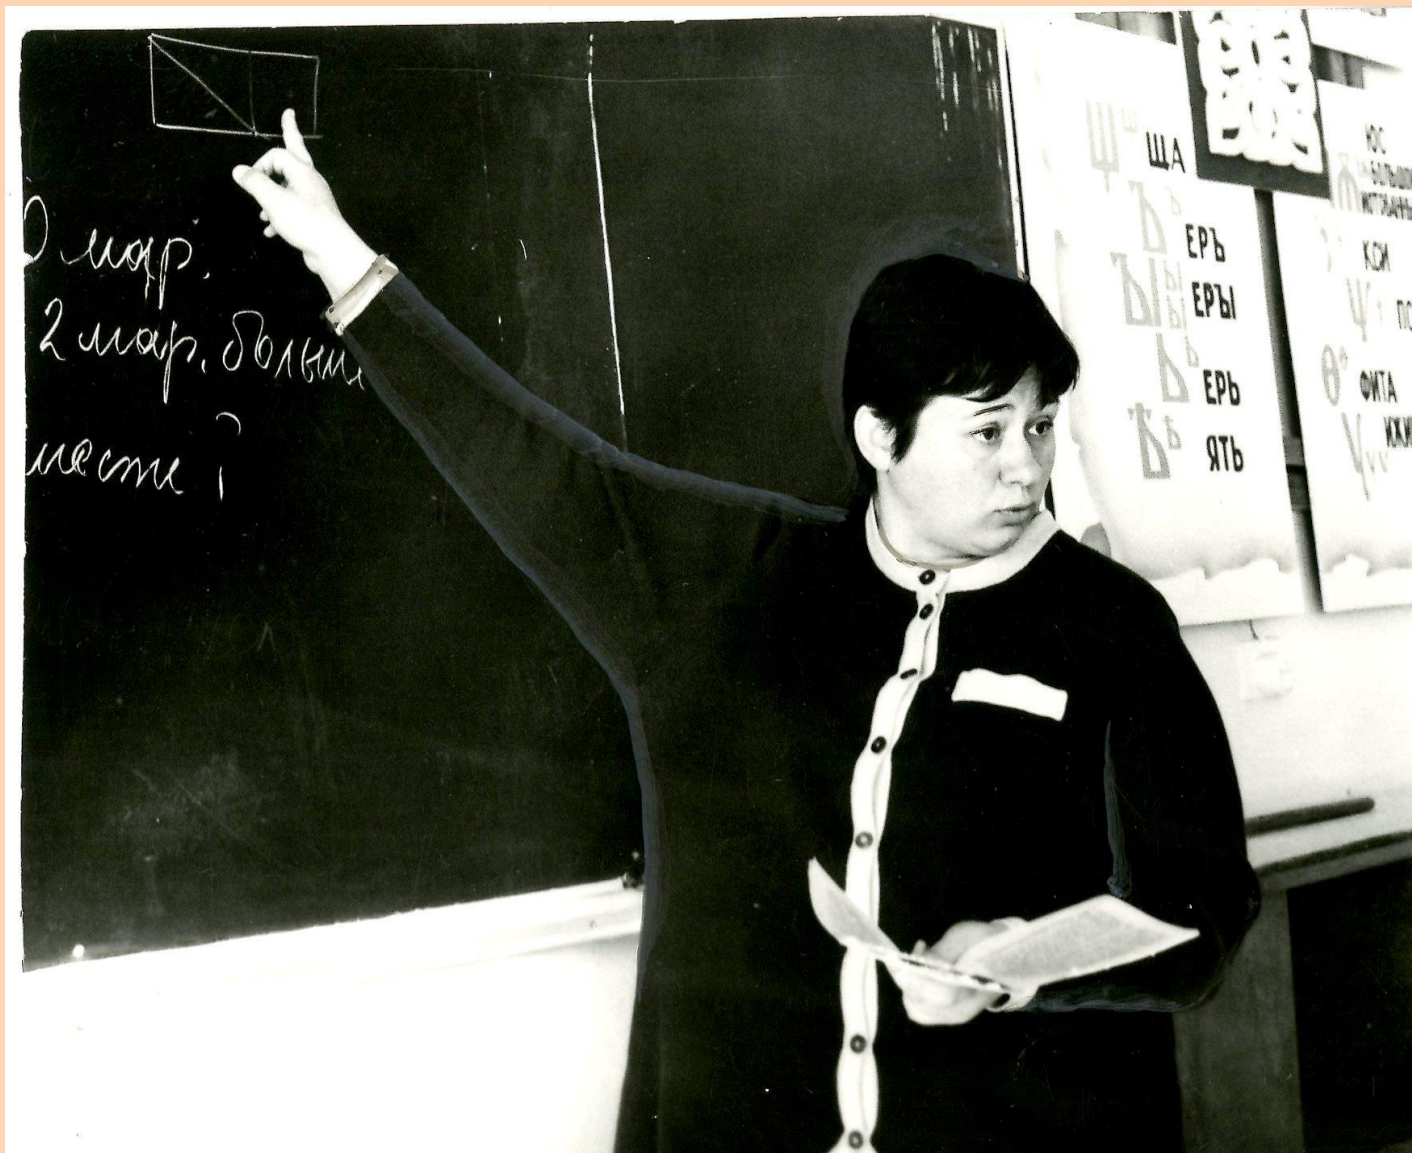 0 мар.
2 мар. больше
вместе ?
Щ щ ЩА
Ъ ъ ЕРЪ
Ы ы ЕРЫ
Ь ь ЕРЬ
Ѣ ѣ ЯТЬ
ЮС
БОЛЬШОЙ
КСИ
Ѱ
Ѳ ѳ ФИТА
Ѵ ѵ